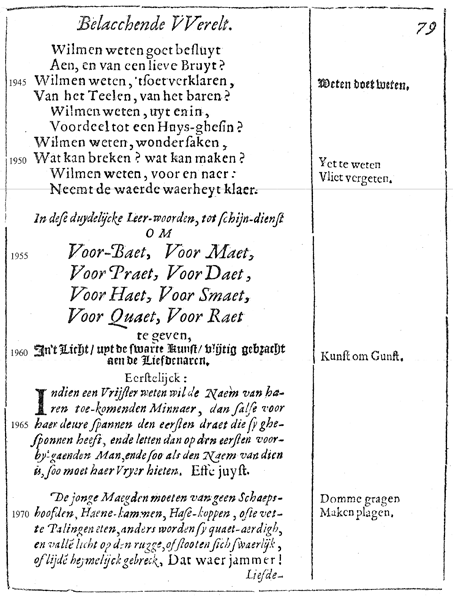 Belacchende VVerelt. 79
Wilmen weten goet besluyt
Aen, en van een lieve Bruyt?
1945 Wilmen weten, 'tsoet verklaren, Weten doet weten.
Van het Teelen, van het baren?
Wilmen weten, uyt en in,
Voordeel tot een Huys-ghesin?
Wilmen weten, wonder saken,
1950 Wat kan breken? wat kan maken? Yet te weten
Wilmen weten, voor en naer: Vliet vergeten.
Neemt de waerde waerheyt klaer.
In dese duydelijcke Leer-woorden, tot schijn-dienst
OM
1955 Voor-Baet, Voor Maet,
Voor Praet, Voor Daet,
Voor Haet, Voor Smaet,
Voor Quaet, Voor Raet
te geven,
1960 In't Licht / uyt de swarte Kunst / vlijtig gebracht Kunst om Gunst.
aen de Liefdenaren.
Eerstelijck:
Indien een Vrijster weten wil de Naem van ha-
ren toe-komenden Minnaer, dan salse voor
1965 haer deure spannen den eersten draet die sy ghe-
sponnen heeft, ende letten dan op den eersten voor-
by-gaenden Man, ende soo als den Naem van dien
is, soo moet haer Vryer hieten. Effe juyst.
De jonge Maegden moeten van geen Schaeps- Domme gragen
1970 hoofden, Haene-kammen, Hase-koppen, ofte vet- Maken plagen.
te Palingen eten, anders worden sy quaet-aerdigh,
en vallē licht op den rugge, of stooten sich swaerlijk,
of lijdē heymelijck gebreck, Dat waer jammer!
Liefde-